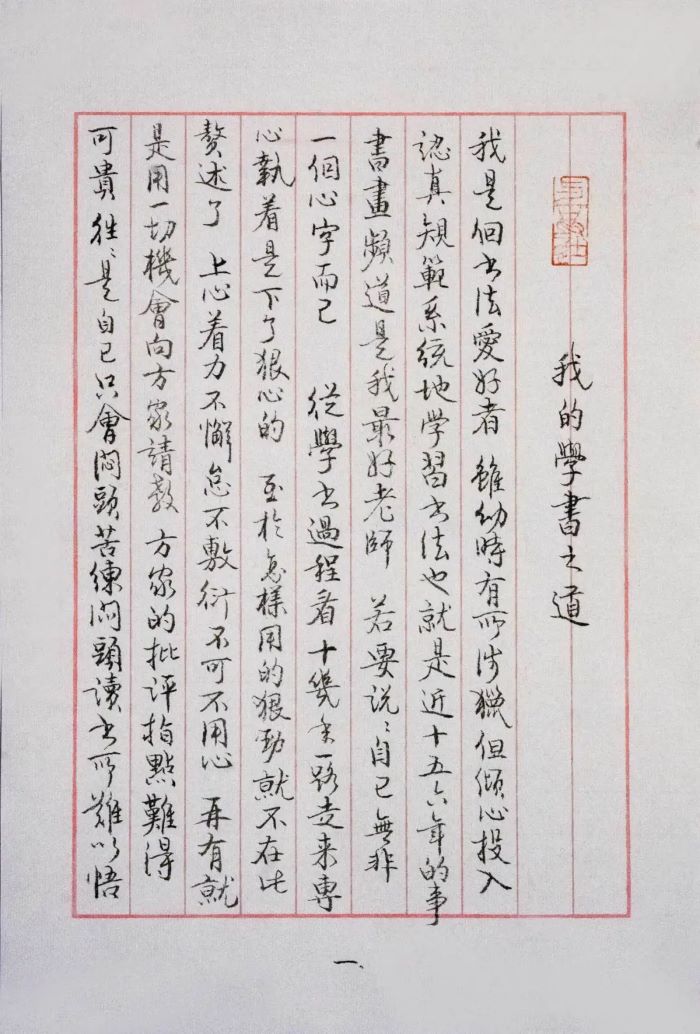 我的學書之道
我是個书法愛好者 雖幼時有所涉獵但倾心投入
認真規範系統地学習书法也就是近十五六年的事
書畫頻道是我最好老師 若要说说自己無非
一個心字而已 從學书過程看十幾年一路走来專
心執着是下了狠心的 至於怎樣用的狠勁就不在此
贅述了 上心着力不懈怠不敷衍不可不用心 再有就
是用一切機會向方家請教 方家的批评指點難得
可貴 往往是自己只會闷頭苦练闷頭讀书所難以悟
一